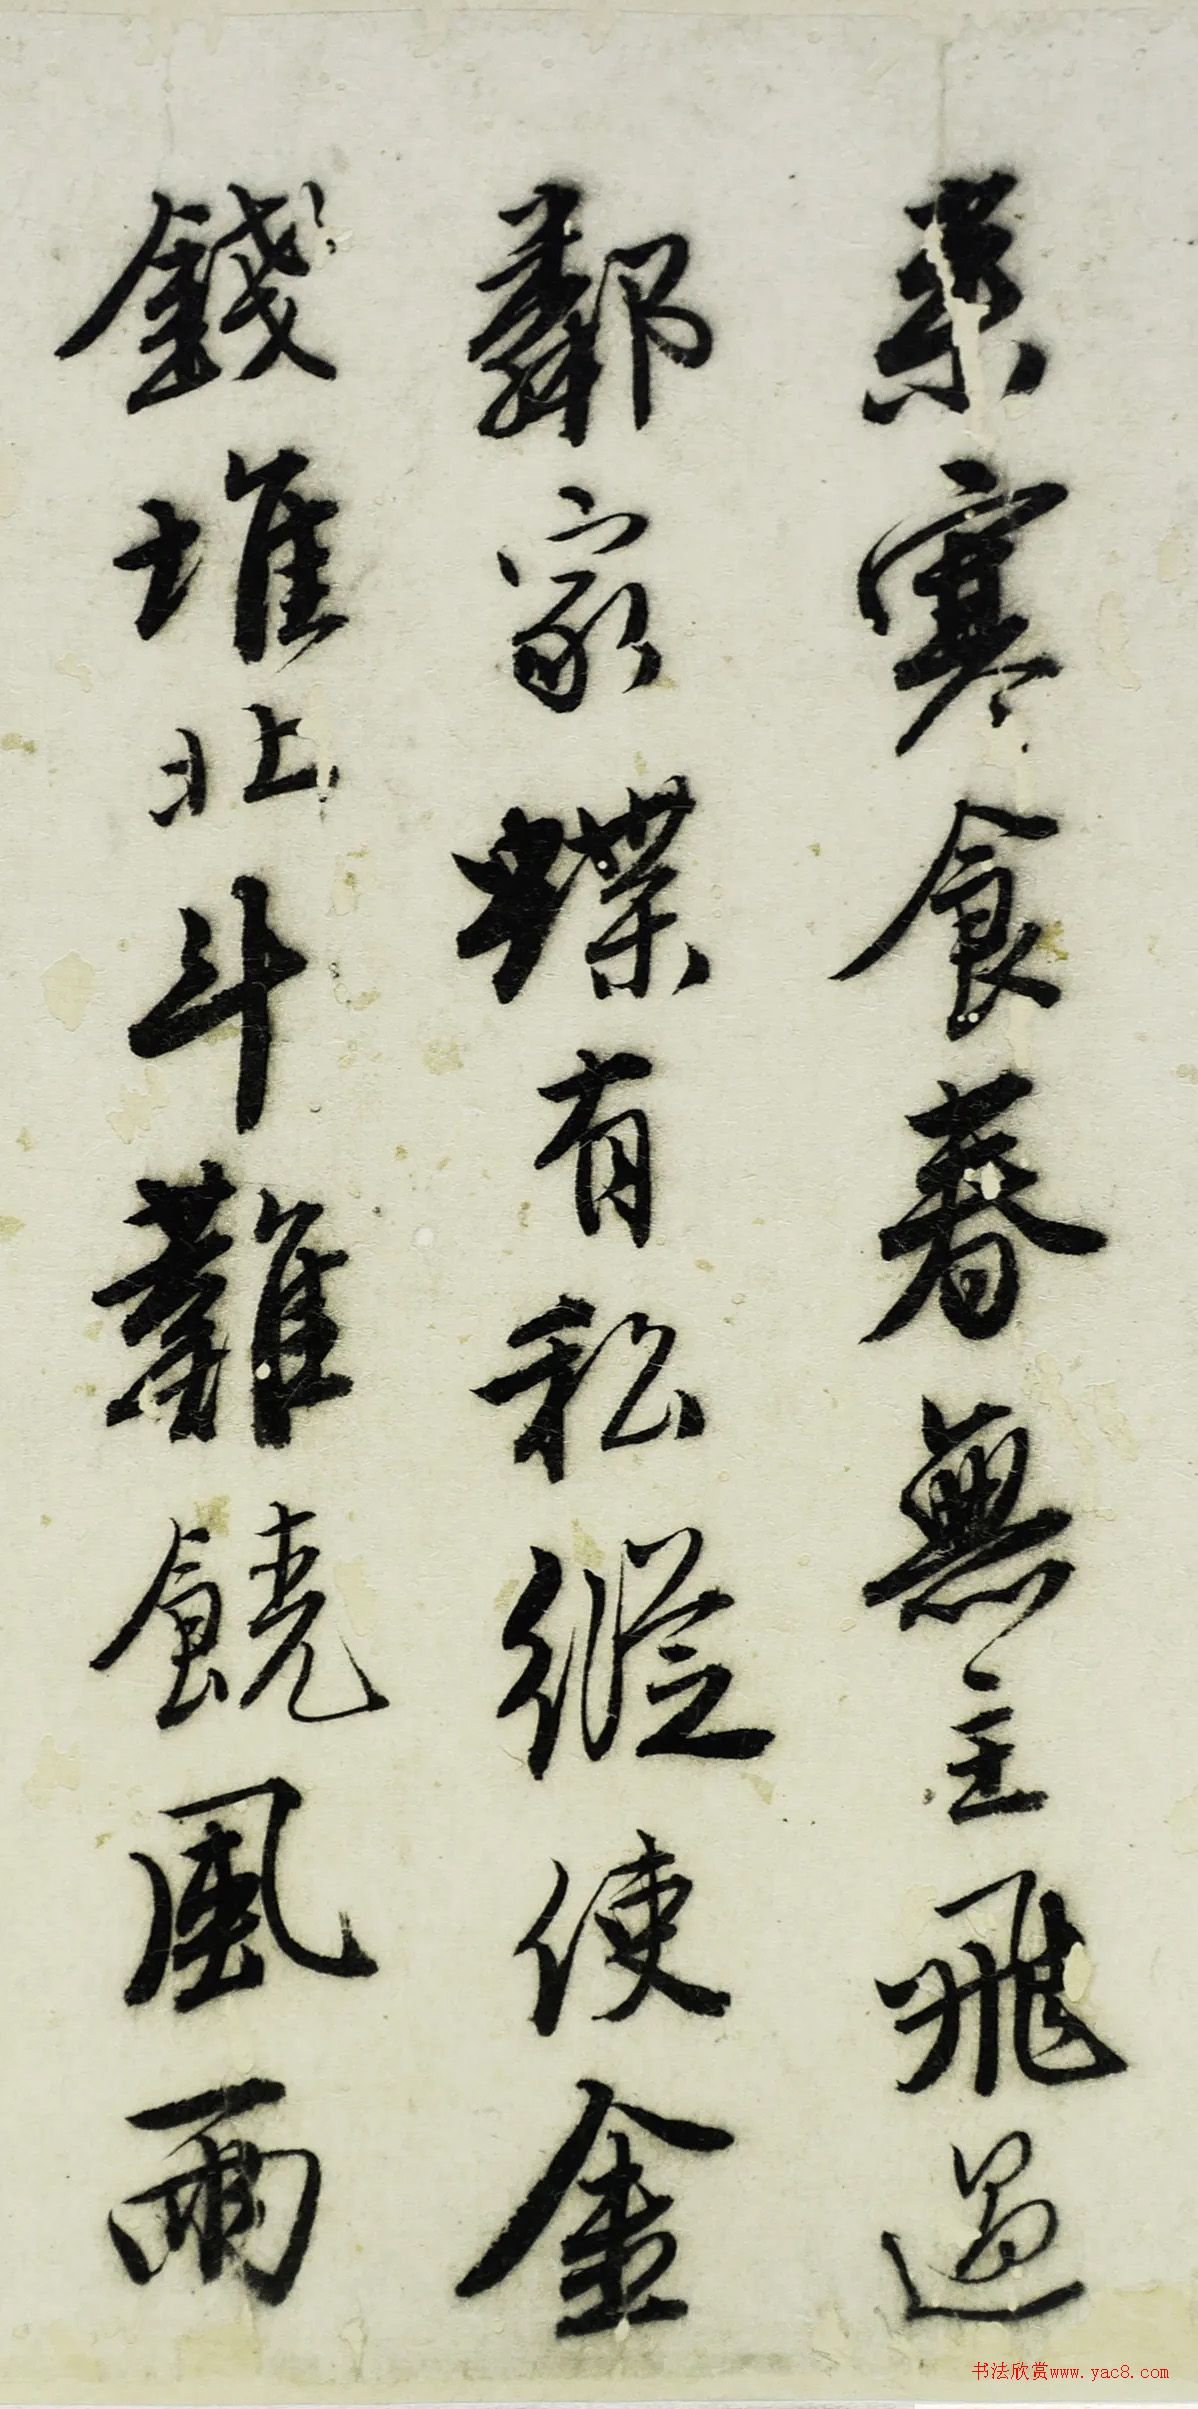 寒食春無主飛過
鄰家蝶有私縱使金
錢堆北斗難饒風雨
书法欣赏www.yac8.com